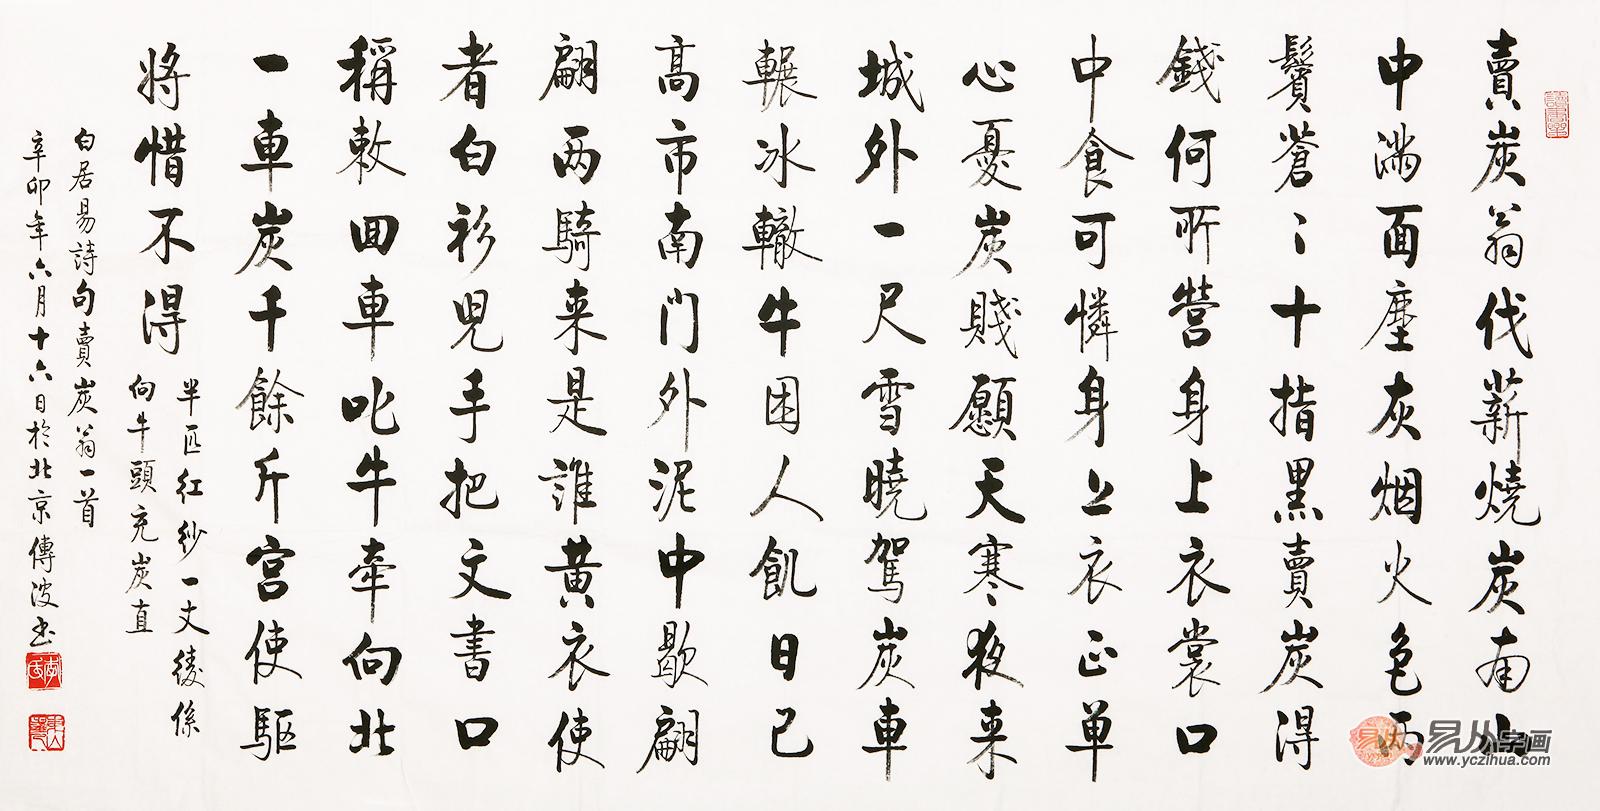 賣炭翁伐薪燒炭南山
中滿面塵灰烟火色两
鬢蒼〻十指黑賣炭得
錢何所營身上衣裳口
中食可憐身上衣正单
心憂炭賤願天寒夜来
城外一尺雪曉駕炭車
輾冰轍牛困人飢日已
高市南门外泥中歇翩
翩两騎来是誰黄衣使
者白衫児手把文書口
稱敕回車叱牛牽向北
一車炭千餘斤宫使駈
将惜不得
半匹红纱一丈綾係
向牛頭充炭直
白居易詩句賣炭翁一首
辛卯年六月十六日於北京傳波书
易从字画
www.yczihua.com